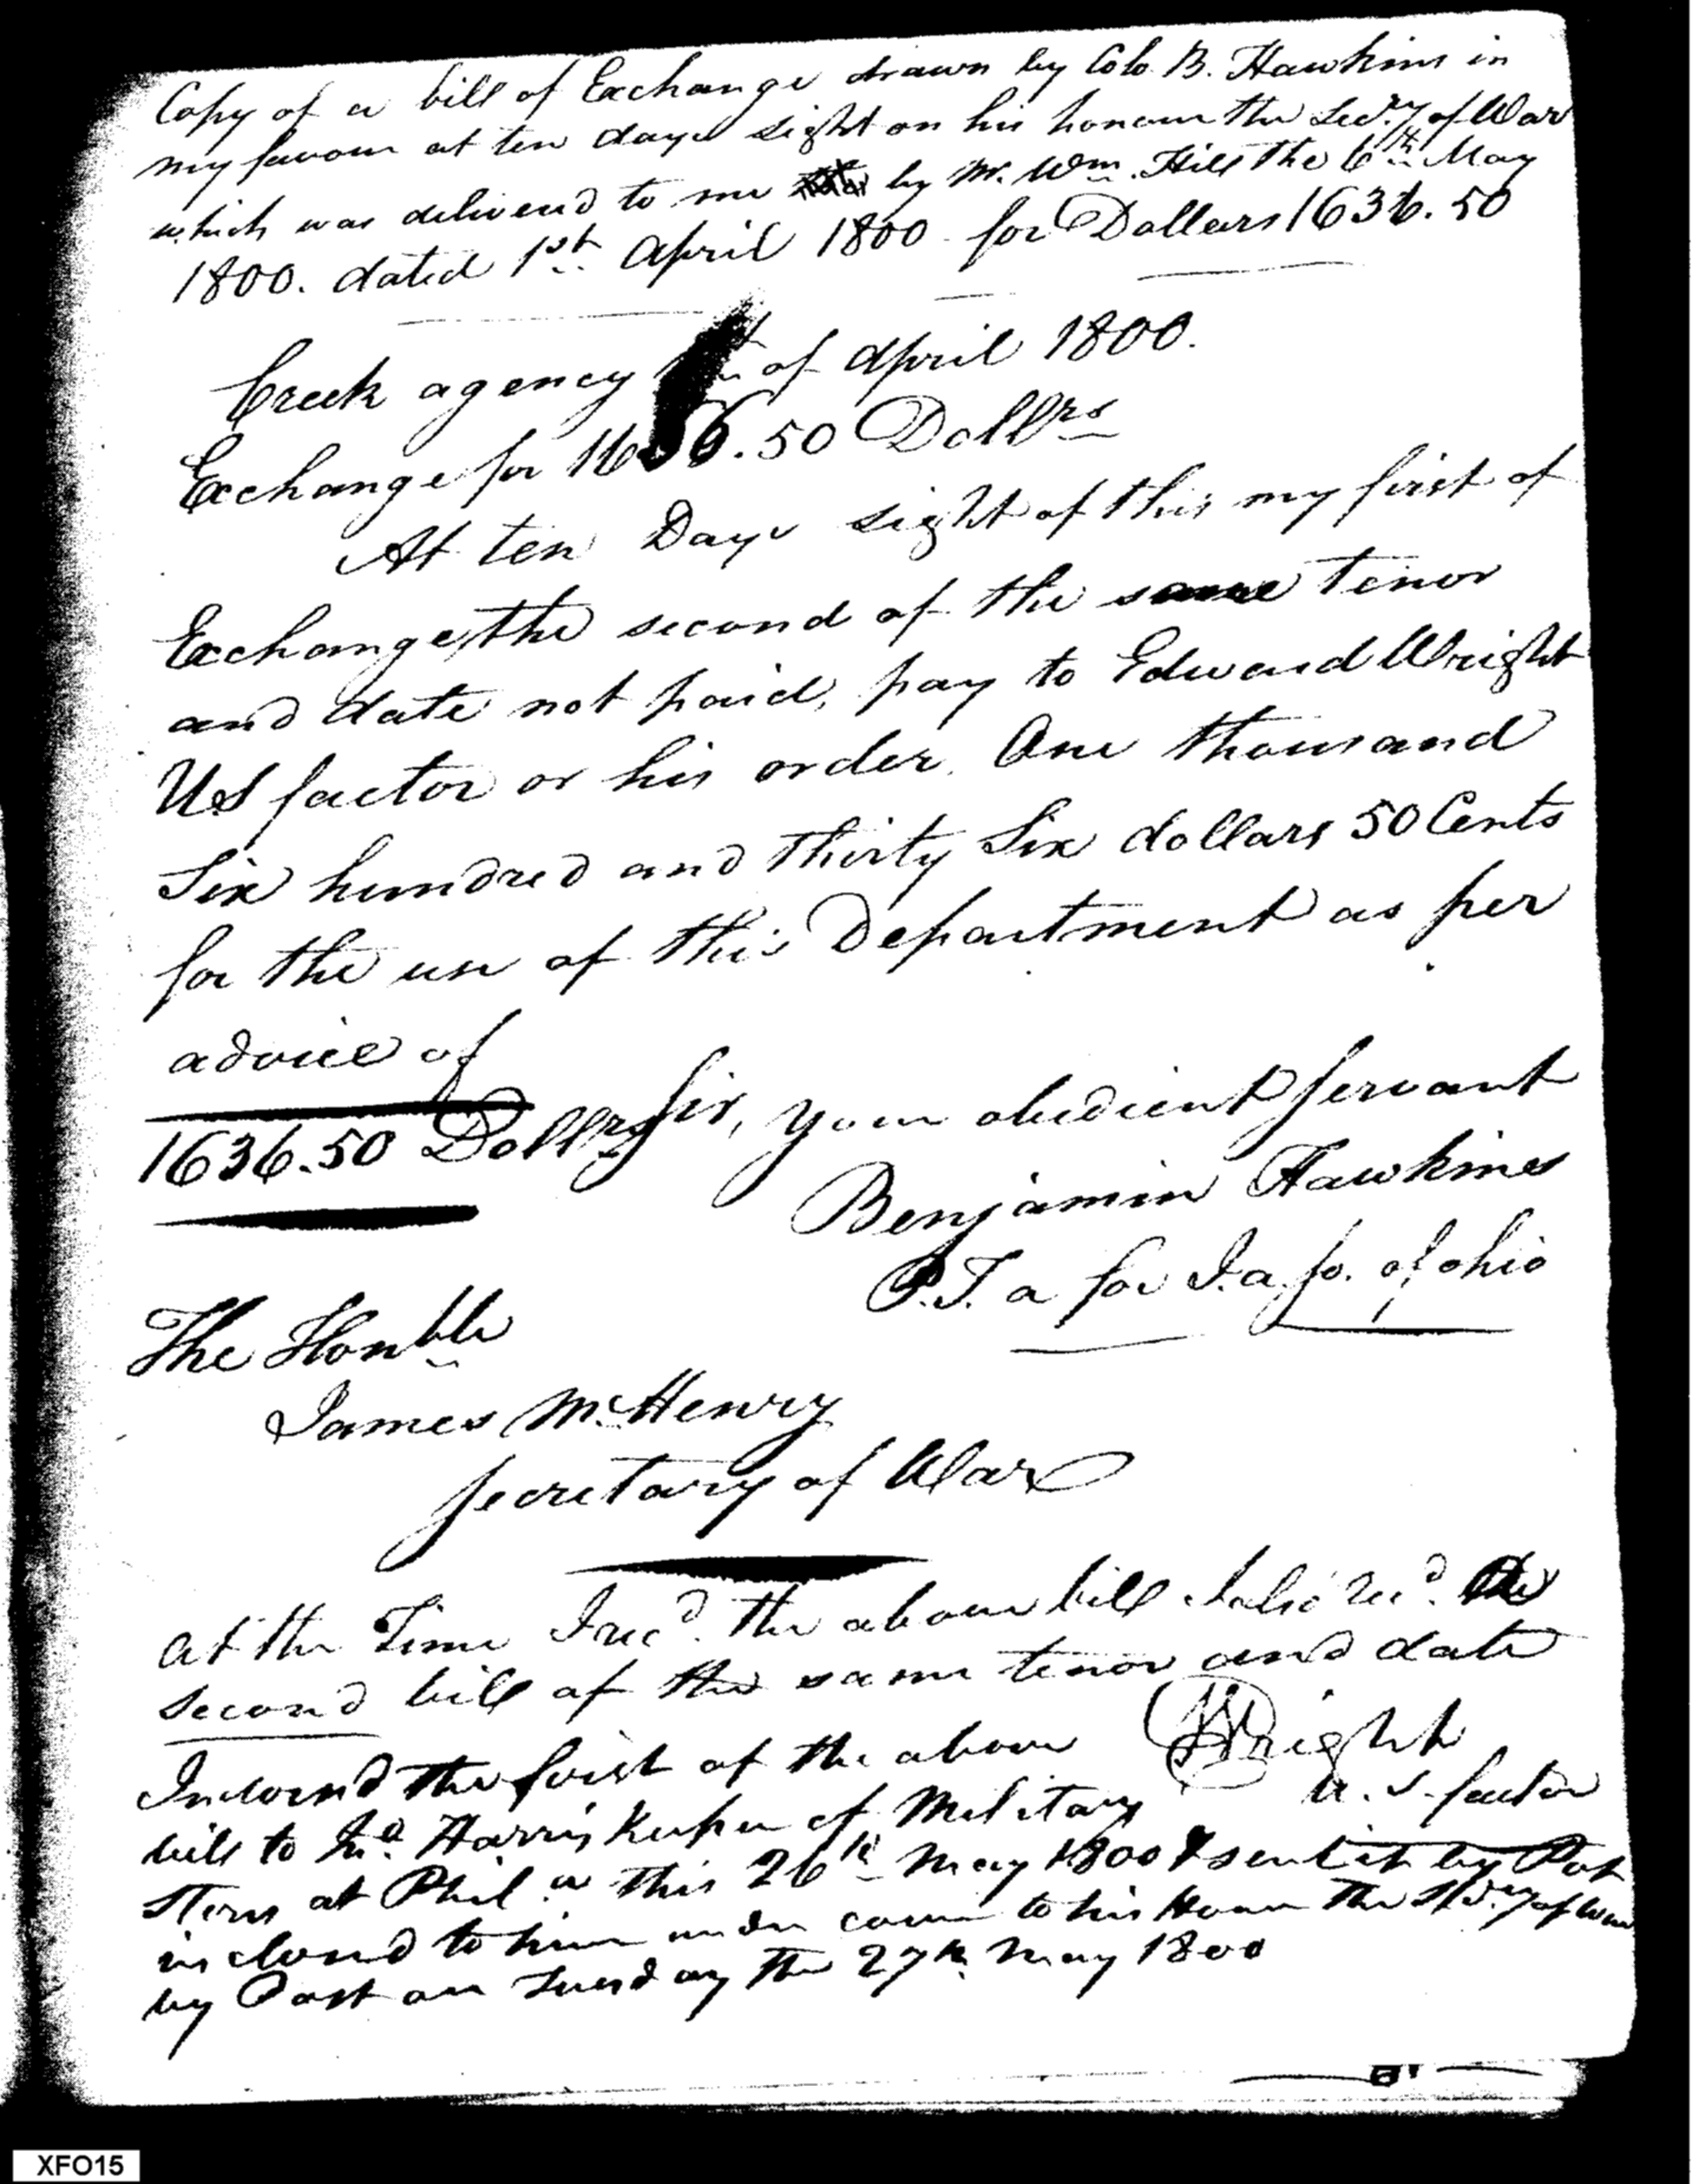 Copy of a bill of Exchange drawn by Colo. B. Hawkins in
my favour at ten days sight on his honour the Secry of War
which was deliverd to me by Mr. Wm. Hill the 6th May
1800. dated 1st April 1800 for Dollars 1636.50
Creek agency of April 1800.
Exchange for 1636.50 Dollrs
At ten Days sight of this my first of
Exchange, the second of the same tenor
and date not paid, pay to Edward Wright
US factor or his order. One thousand
Six hundred and thirty Six dollars 50 Cents
for the use of this Department as per
advice of
Sir, your obedient servant
1636.50 Dollrs
Benjamin Hawkins
P.T.a for I.a.so. of ohio
The Honble
James McHenry
Secretary of War
At the Time I recd. the above bill I also recd. the
second bill of the same tenor and date
Wright
U.S. factor
Indorsd the first of the above
bill to Jno. Harris Keeper of Military
Stores at Phila this 26th May 1800 & sent it by Post
inclosed to him under cover to his Honr the Secry of War
by Post on Tuesday the 27th May 1800
XFO15